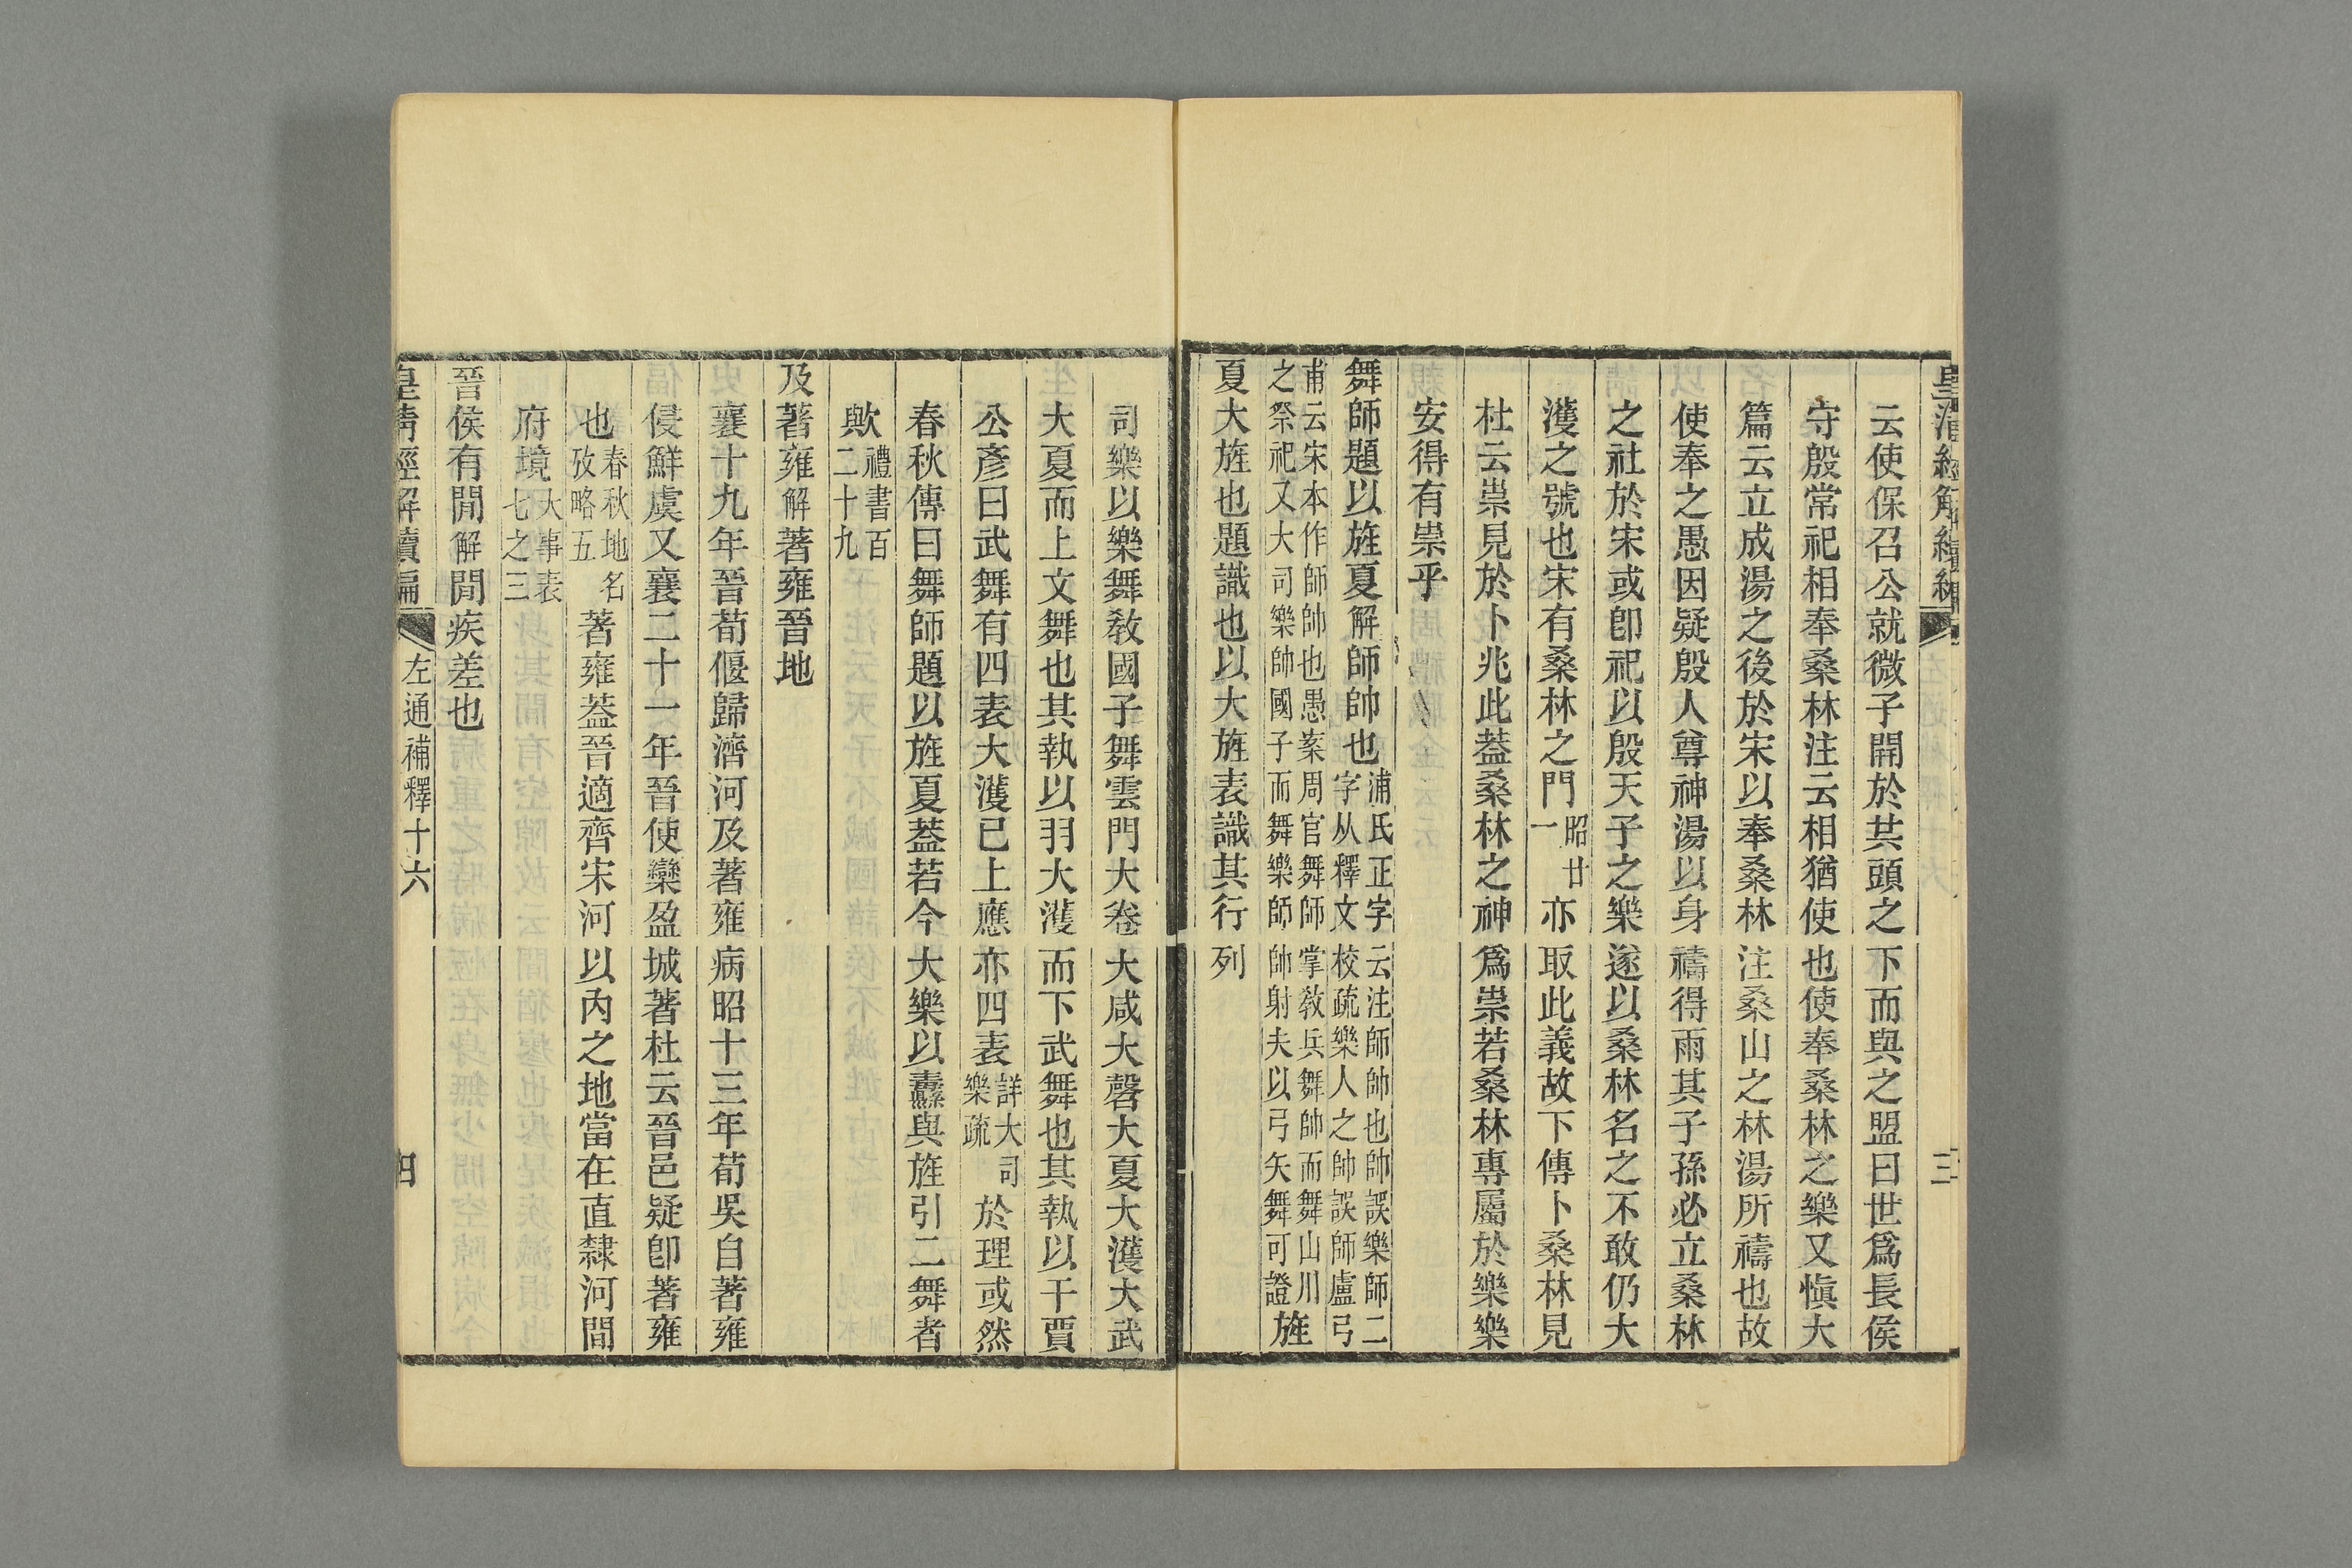 皇清經解續編 三
云使保召公就微子開於共頭之下而與之盟曰世爲長侯
守殷常祀相奉桑林注云相猶使也使奉桑林之樂又愼大
篇云立成湯之後於宋以奉桑林注桑山之林湯所禱也故
使奉之愚因疑殷人尊神湯以身禱得雨其子孫必立桑林
之社於宋或卽祀以殷天子之樂遂以桑林名之不敢仍大
濩之號也宋有桑林之門昭廿一亦取此義故下傳卜桑林見
杜云祟見於卜兆此葢桑林之神爲祟若桑林專屬於樂樂
安得有祟乎
舞師題以旌夏解師帥也浦氏正字云注師帥也帥誤樂師二字从釋文校疏樂人之帥誤師盧弓
甫云宋本作師帥也愚案周官舞師掌敎兵舞帥而舞山川之祭祀又大司樂帥國子而舞樂師帥射夫以弓矢舞可證旌
夏大旌也題識也以大旌表識其行列
司樂以樂舞敎國子舞雲門大卷大咸大磬大夏大濩大武
大夏而上文舞也其執以羽大濩而下武舞也其執以干賈
公彥曰武舞有四表大濩已上應亦四表詳大司樂疏於理或然
春秋傳曰舞師題以旌夏葢若今大樂以纛與旌引二舞者
歟禮書百二十九
及著雍解著雍晉地
襄十九年晉荀偃歸濟河及著雍病昭十三年荀吳自著雍
侵鮮虞又襄二十一年晉使欒盈城著杜云晉邑疑卽著雍
也春秋地名攷略五著雍葢晉適齊宋河以內之地當在直隸河間
府境大事表七之三
晉侯有閒解閒疾差也
皇淸經解續編 左通補釋十六 四